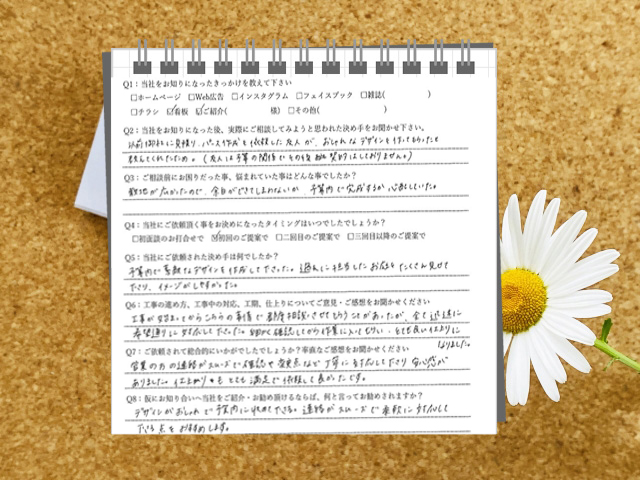 Q1：当社をお知りになったきっかけを教えて下さい
□ホームページ □Web広告 □インスタグラム □フェイスブック □雑誌( )
□チラシ ☑看板 ☑ご紹介( 様) □その他( )
Q2：当社をお知りになった後、実際にご相談してみようと思われた決め手をお聞かせ下さい。
以前御社に見積り、パース作成を依頼した友人が、おしゃれなデザインを作ってもらったと
教えてくれたため。(友人は予算の関係でその後契約はしておりません。)
Q3：ご相談前にお困りだった事、悩まれていた事はどんな事でしたか?
敷地が広かったので、余白ができてしまわないか、予算内で完成するか心配していた。
Q4：当社にご依頼頂く事をお決めになったタイミングはいつでしたでしょうか?
□初面談のお打合せで ☑初回のご提案で □二回目のご提案で □三回目以降のご提案で
Q5：当社にご依頼された決め手は何でしたか?
予算内で素敵なデザインを作成して下さった。過去に担当したお庭をたくさん見せて
下さり、イメージがしやすかった。
Q6：工事の進め方、工事中の対応、工期、仕上りについてご意見・ご感想をお聞かせください
工事が始まってからこちらの事情で都度相談させてもらうことがあったが、全て迅速に
希望通りに対応して下さった。細かく確認してから作業に入ってもらい、とても良い仕上りに
なりました。
Q7：ご依頼されて総合的にいかがでしたでしょうか?率直なご感想をお聞かせください
営業の方の連絡がスムーズで確認や変更点など丁寧に対応して下さり安心感が
ありました。仕上がりもとても満足で依頼して良かったです。
Q8：仮にお知り合いへ当社をご紹介・お勧め頂けるならば、何と言ってお勧めされますか?
デザインがおしゃれで予算内に収めて下さる。連絡がスムーズで柔軟に対応して
下さる点をおすすめします。